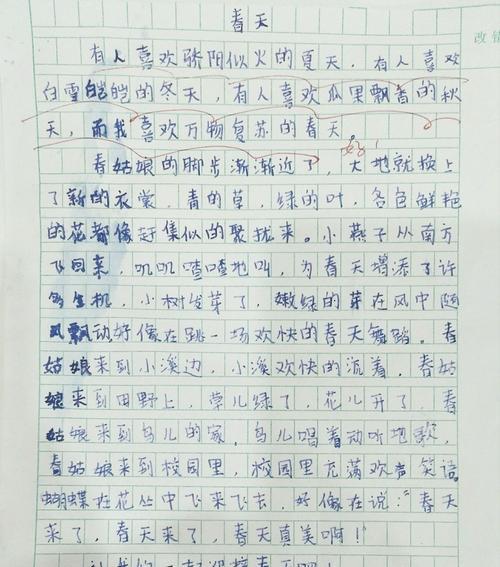 春天
改错
有人喜欢骄阳似火的夏天，有人喜欢
白雪皑皑的冬天，有人喜欢瓜果飘香的秋
天，而我喜欢万物复苏的春天。
好！
春姑娘的脚步渐渐近了，大地就换上
了新的衣裳，青的草，绿的叶，各色鲜艳
的花都像赶集似的聚拢来。小燕子从南方
飞回来，叽叽喳喳地叫，为春天增添了许
多生机，小树发芽了，嫩绿的芽在风中随
风飘动好像在跳一场欢快的春天舞蹈。春
姑娘来到小溪边，小溪欢快的流着，春姑
娘来到田野上，草儿绿了，花儿开了，春
姑娘来到鸟儿的家，鸟儿唱着动听地歌，
春姑娘来到校园里，校园里充满欢声笑语。
蝴蝶在花丛中飞来飞去，好像在说："春天
来了，春天来了，春天真美啊！